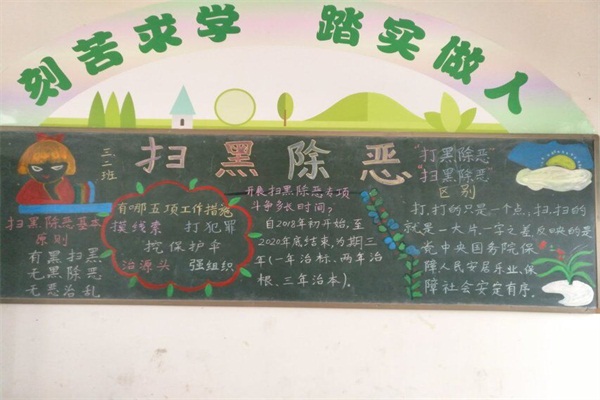 刻苦求学 踏实做人
三.二班
扫黑除恶
扫黑.除恶基本
原则
有黑扫黑
无黑除恶
无恶治乱
有哪五项工作措施
摸线索 打犯罪
挖保护伞
治源头 强组织
开展扫黑除恶专项
斗争多长时间?
自2018年初开始,至
2020年底结束,为期三
年(一年治标、两年治
根、三年治本)。
"打黑除恶"
"扫黑除恶"
区别
打.打的只是一个点;扫.扫的
就是一大片,一字之差,反映的是
党中央国务院保
障人民安居乐业、保
障社会安定有序.